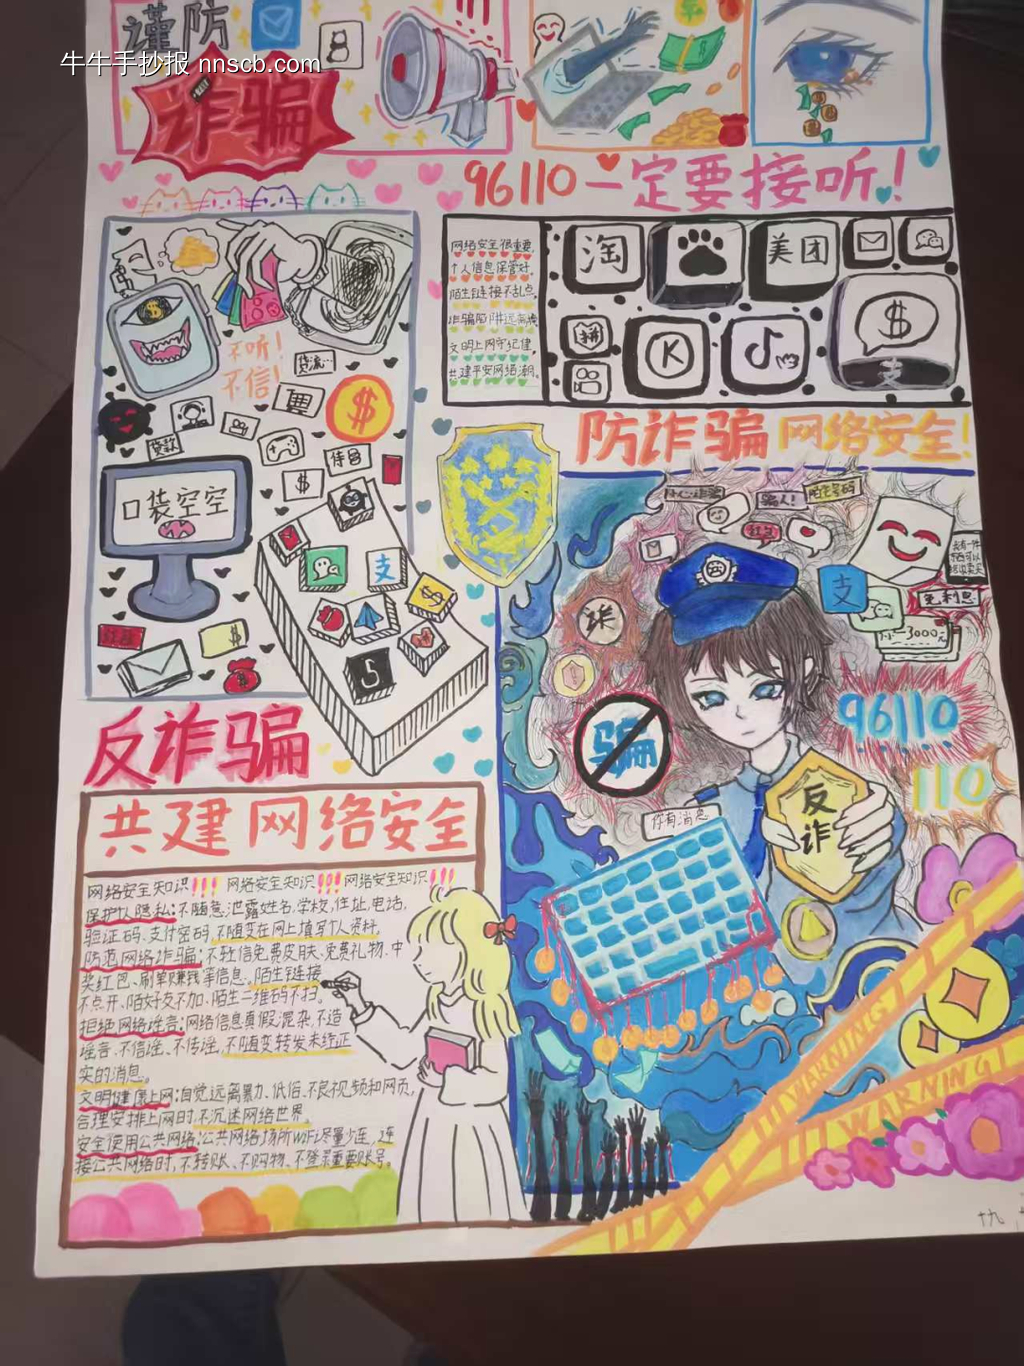 谨防
牛牛手抄报 nnscb.com
诈骗
96110一定要接听！
网络安全很重要，
个人信息保管好，
陌生链接不乱点，
诈骗陷阱远离我
文明上网守纪律，
共建平安网络潮。
淘
美团
拼
K
$
支
不听！
不信！
贷流…
$
贷款
$
转
口袋空空
支
$
$
防诈骗 网络安全！
陌生号码
红包
支
无利息
3000元
诈
骗
96110
110
反
诈
你有消息
反诈骗
共建网络安全
网络安全知识！！！网络安全知识！！！网络安全知识！！！
保护个人隐私：不随意泄露姓名，学校，住址，电话，
验证码、支付密码，不随变在网上填写个人资料。
防范网络诈骗：不轻信免费皮肤、免费礼物、中
奖红包、刷单赚钱等信息。陌生链接
不点开、陌好友不加、陌生二维码不扫。
拒绝网络谣言：网络信息真假混杂，不造
谣言、不信谣、不传谣，不随变转发未经证
实的消息。
文明健康上网：自觉远离暴力、低俗、不良视频和网页，
合理安排上网时，不沉迷网络世界。
安全使用公共网络：公共网络场所WiFi尽量少连，连
接公共网络时，不转账、不购物、不登录重要账号。
WARNING
WARNING